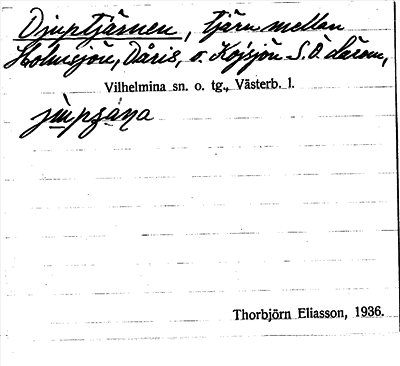 Djuptjärnen, tjärn mellan
Holmsjön, Dåris, o. Kojsjön S.O. därom,
Vilhelmina sn. o. tg., Västerb. l.
Thorbjörn Eliasson, 1936.